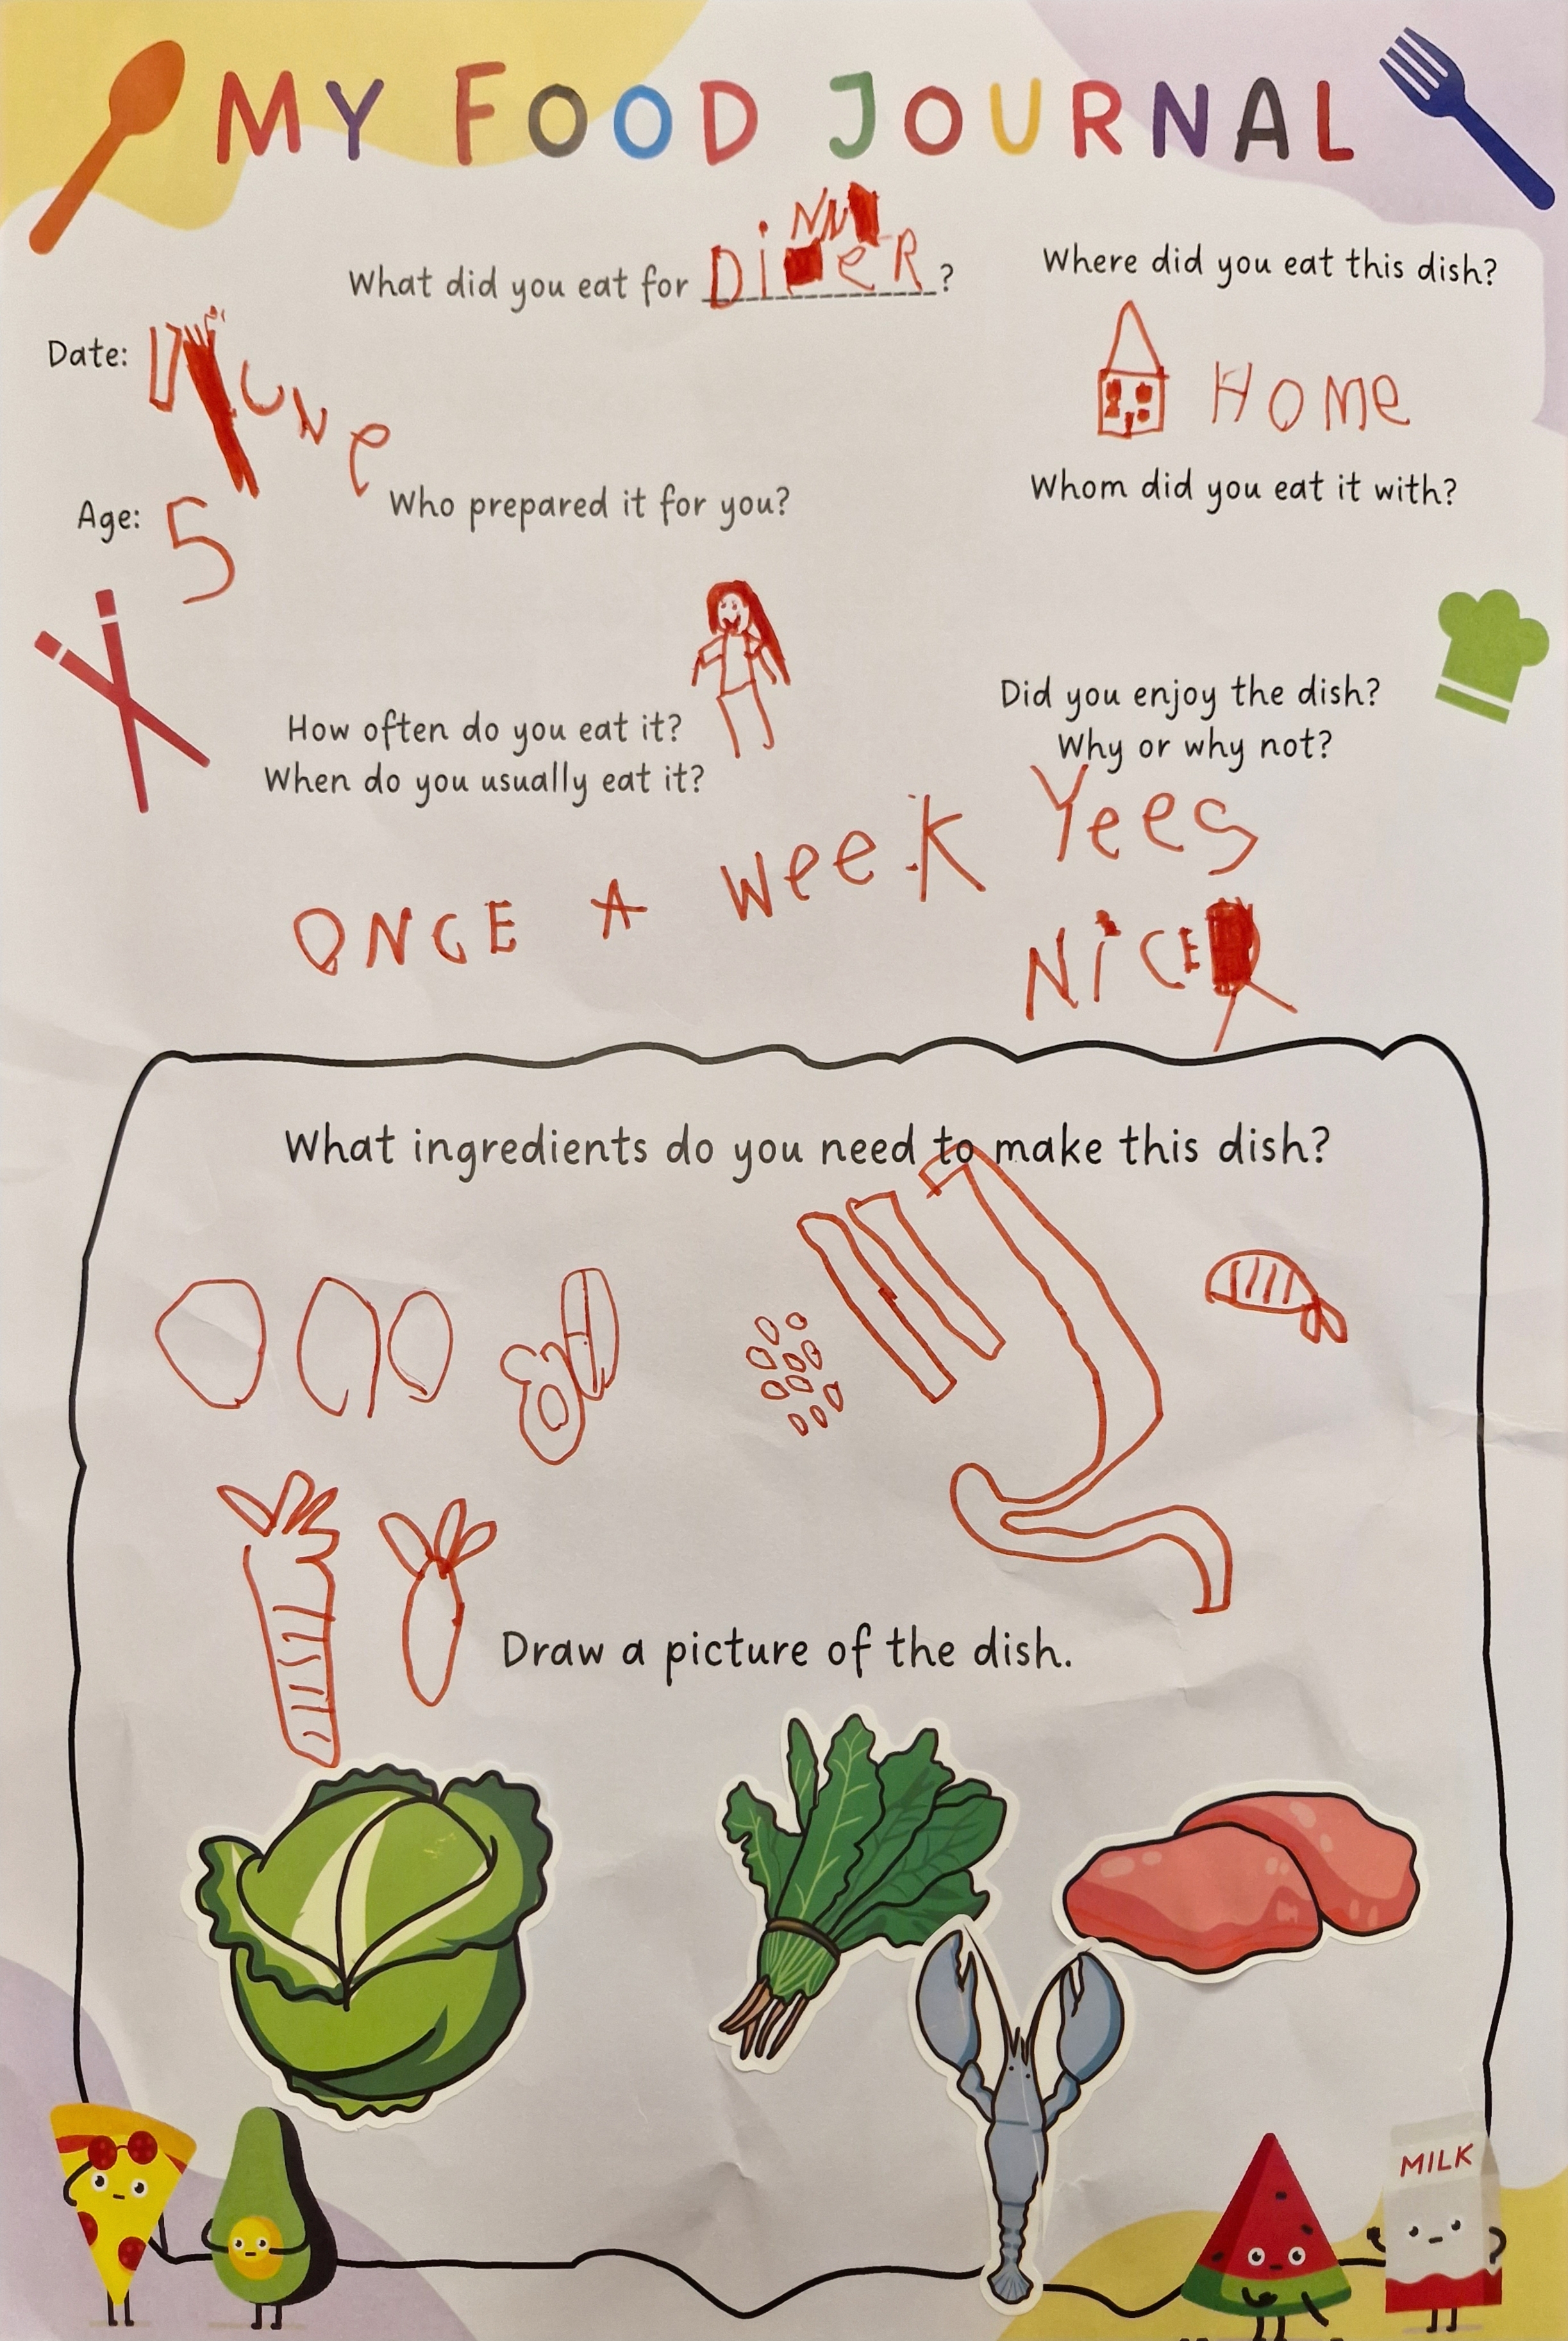 MY FOOD JOURNAL
What did you eat for DiNNeR?
Where did you eat this dish?
HOMe
Date:
Age: 5
Who prepared it for you?
Whom did you eat it with?
How often do you eat it?
When do you usually eat it?
ONCE A week
Did you enjoy the dish?
Why or why not?
Yees
NiCE
What ingredients do you need to make this dish?
Draw a picture of the dish.
MILK